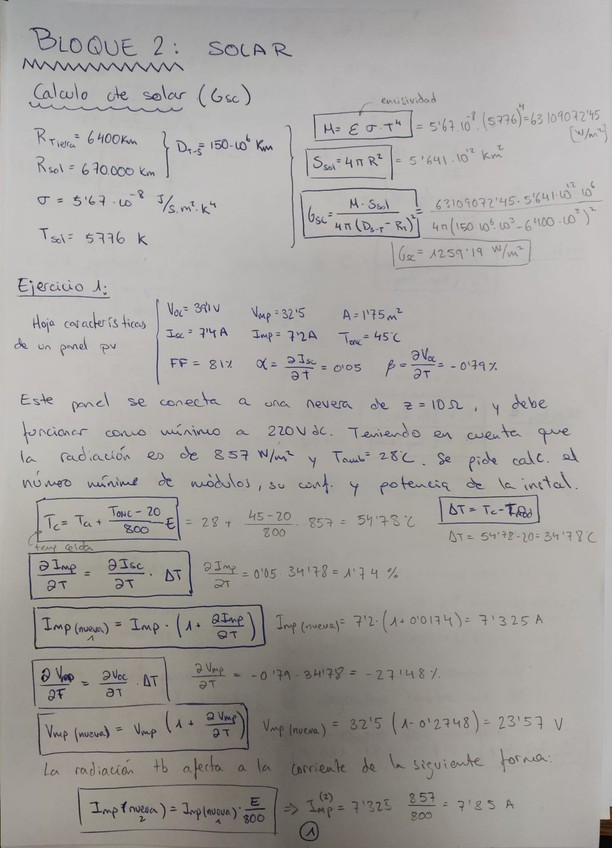 BLOQUE 2: SOLAR
Calculo cte solar (Gsc)
emisividad
R Tierra = 6400 Km
R sol = 670.000 km
D T-S = 150·10⁶ Km
σ = 5'67·10⁻⁸ J/s.m².K⁴
T sol = 5776 K
M = ε σ·T⁴ = 5'67·10⁻⁸·(5776)⁴ = 63109072'45 [W/m²]
S sol = 4π R² = 5'641·10¹² km²
Gsc = M·S sol / 4π (D S-T - R T)² = 63109072'45·5'641·10¹²·10⁶ / 4π (150·10⁶·10³ - 6400·10³)²
Gsc = 1259'19 W/m²
Ejercicio 1:
Hoja características
de un panel pv
Vmp = 32'5 A = 1'75 m²
Isc = 7'4 A Imp = 7'2 A Tonc = 45°C
FF = 81% α = ∂Isc/∂T = 0'05 β = ∂Voc/∂T = -0'79%
Este panel se conecta a una nevera de z = 10 Ω, y debe
funcionar como mínimo a 220 V dc. Teniendo en cuenta que
la radiación es de 857 W/m² y Tamb = 28°C. Se pide calc. el
número mínimo de módulos, su conf. y potencia de la instal.
Tc = Ta + (Tonc - 20)/800 E = 28 + (45-20)/800 · 857 = 54'78°C
temp celda
ΔT = 54'78 - 20 = 34'78 C
∂Imp/∂T = ∂Isc/∂T · ΔT ∂Imp/∂T = 0'05·34'78 = 1'74 %
Imp (nueva) 1 = Imp·(1 + ∂Imp/∂T) Imp (nueva) = 7'2·(1+0'0174) = 7'325 A
= ∂Voc/∂T · ΔT ∂Vmp/∂T = -0'79·34'78 = -27'48%
Vmp (nueva) = Vmp (1 + ∂Vmp/∂T) Vmp (nueva) = 32'5 (1-0'2748) = 23'57 V
La radiación tb afecta a la corriente de la siguiente forma:
Imp (nueva) 2 = Imp (nueva) 1 · E/800 ⇒ Imp (2) = 7'325 857/800 = 7'85 A
1